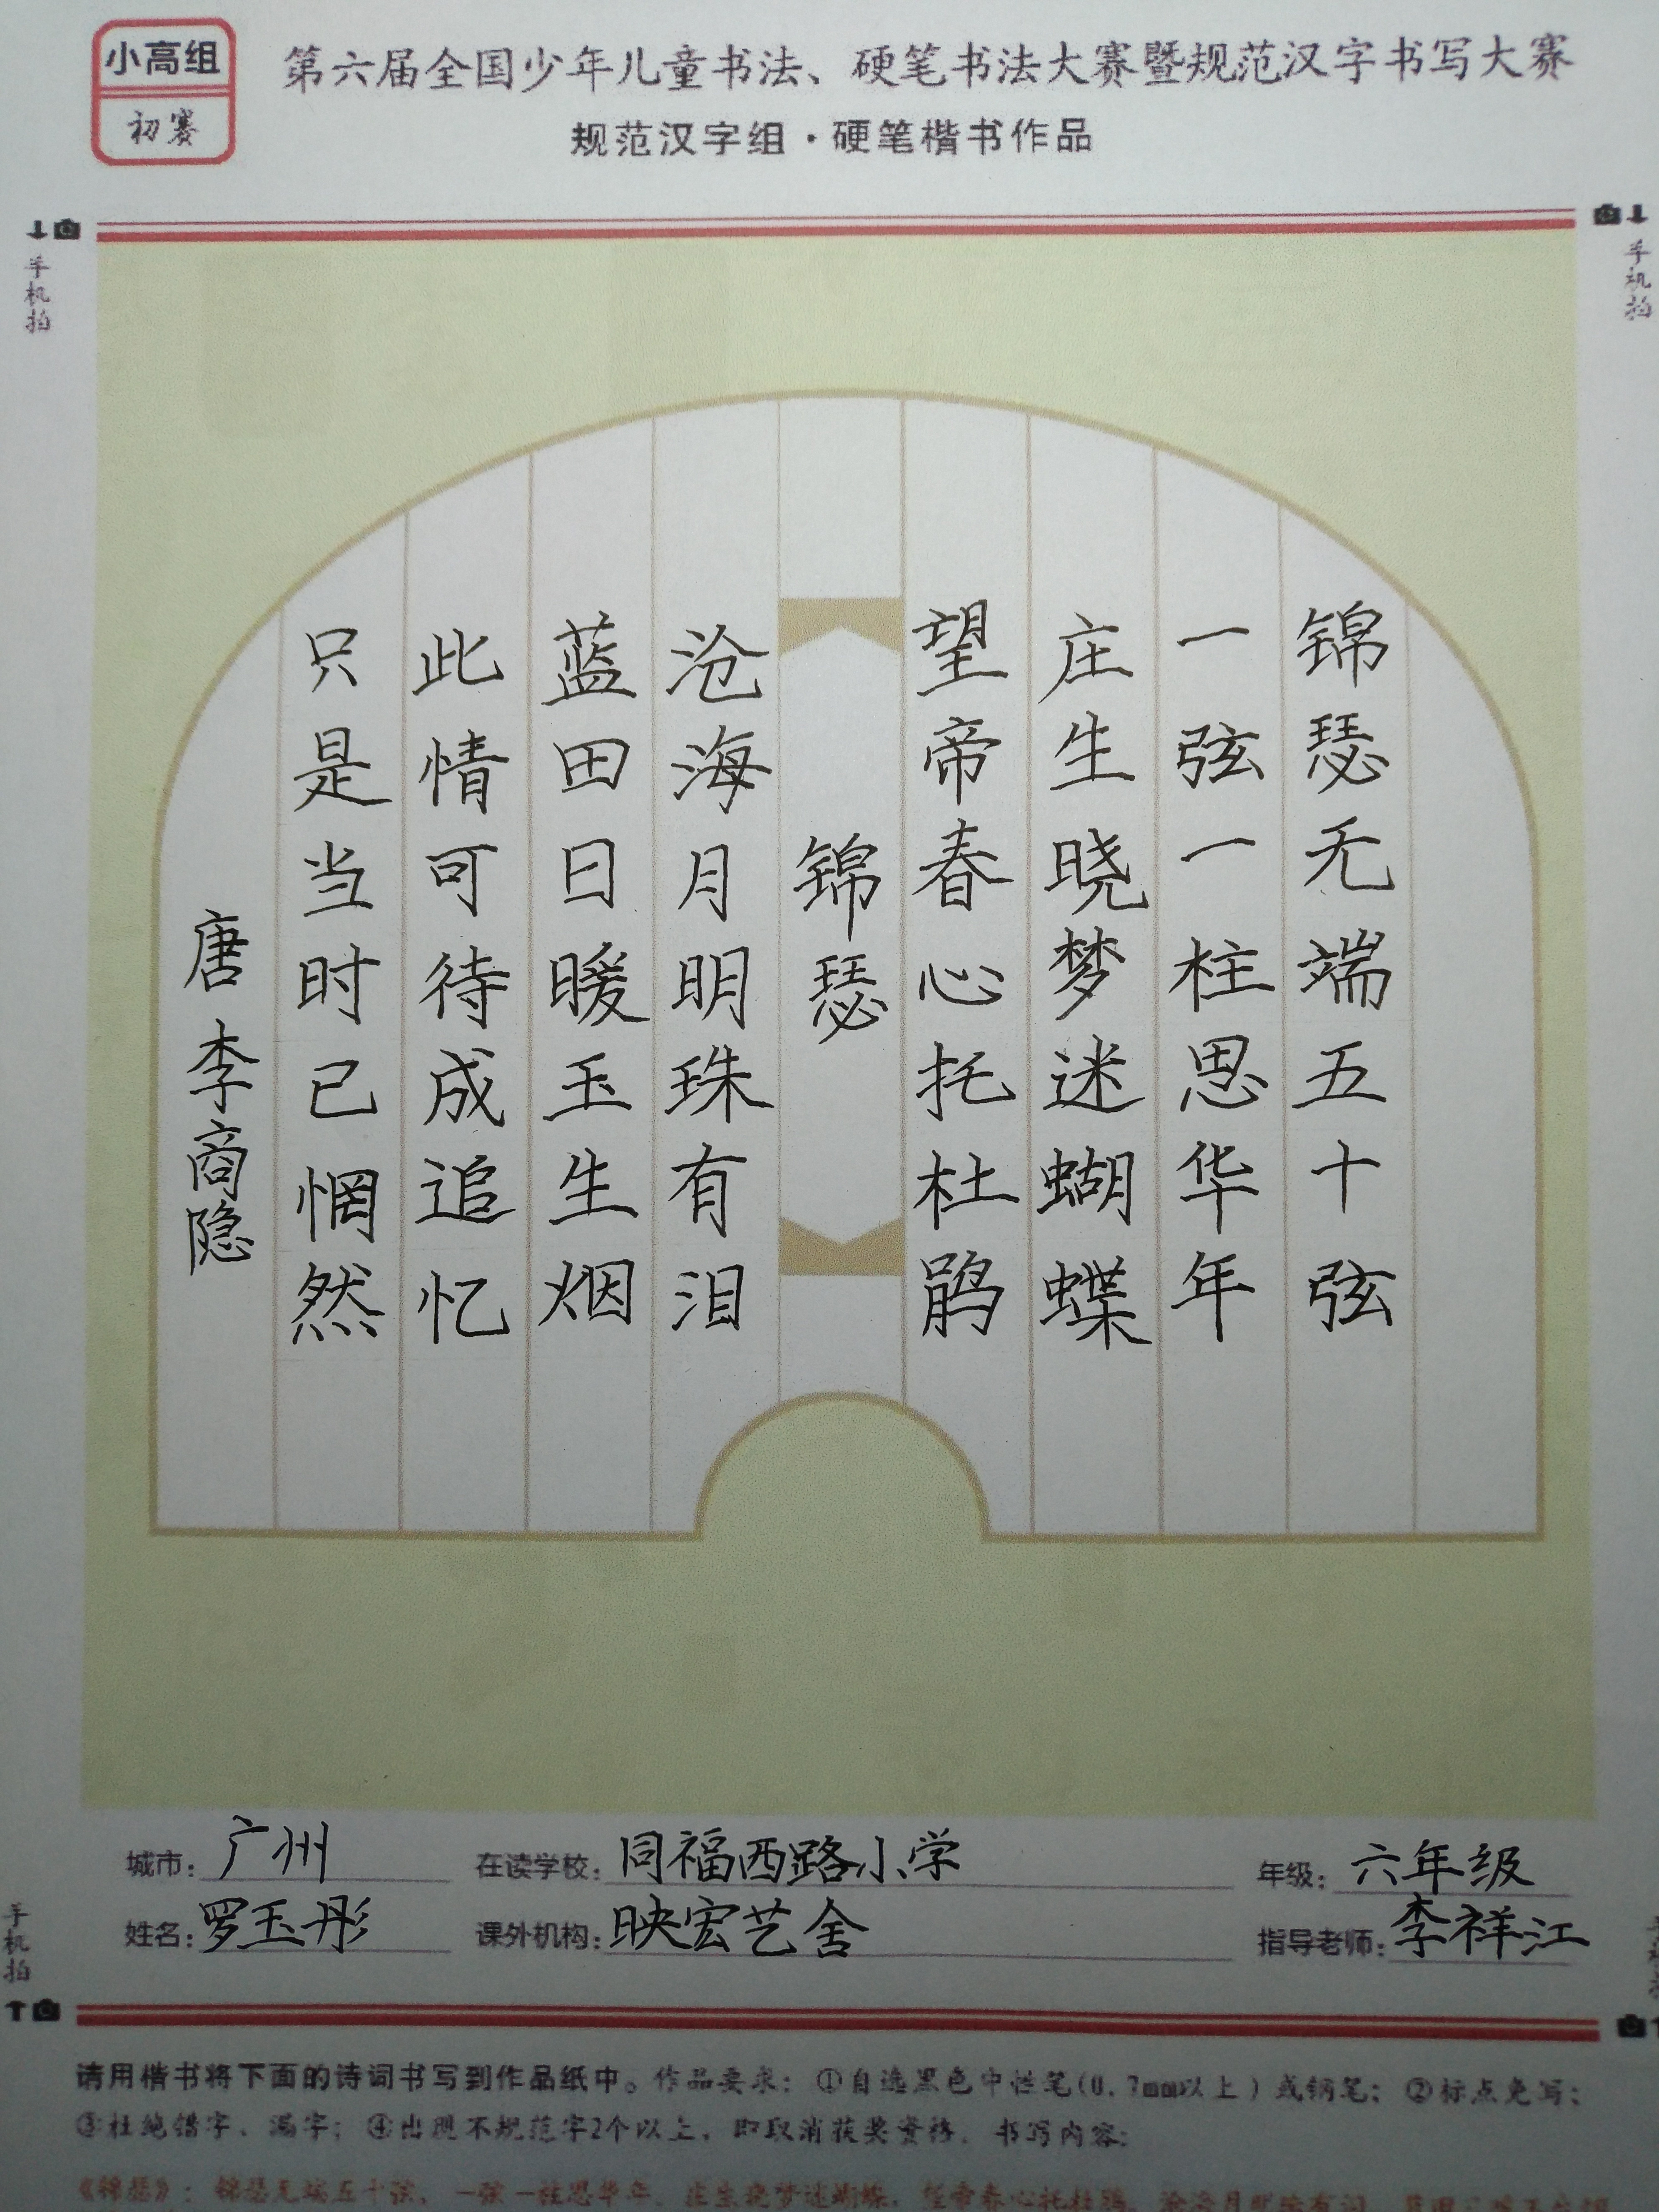 小高组
初赛
第六届全国少年儿童书法、硬笔书法大赛暨规范汉字书写大赛
规范汉字组·硬笔楷书作品
手机拍
手机拍
锦瑟无端五十弦
一弦一柱思华年
庄生晓梦迷蝴蝶
望帝春心托杜鹃
锦瑟
沧海月明珠有泪
蓝田日暖玉生烟
此情可待成追忆
只是当时已惘然
唐李商隐
城市：广州 在读学校：同福西路小学 年级：六年级
姓名：罗玉彤 课外机构：映宏艺舍 指导老师：李祥江
手机拍
请用楷书将下面的诗词书写到作品纸中。作品要求：①自选黑色中性笔(0.7mm以上)或钢笔；②标点免写；
③杜绝错字、漏字；④出现不规范字2个以上，即取消获奖资格。书写内容：
《锦瑟》：锦瑟无端五十弦，一弦一柱思华年。庄生晓梦迷蝴蝶，望帝春心托杜鹃。沧海月明珠有泪，